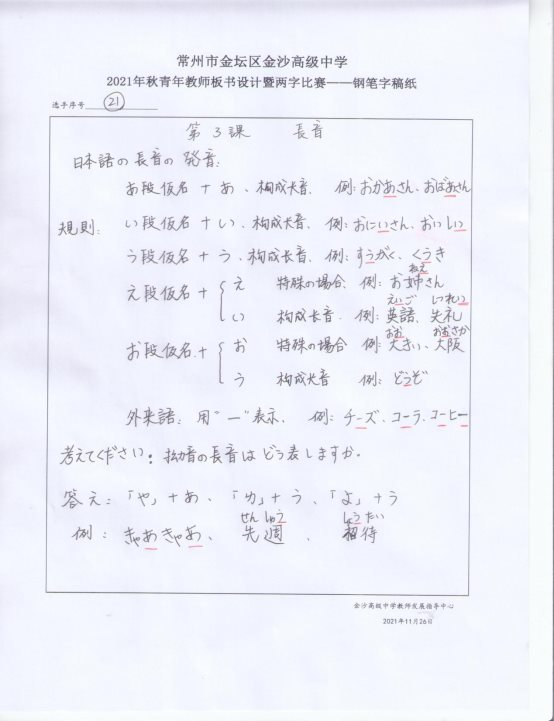 常州市金坛区金沙高级中学
2021年秋青年教师板书设计暨两字比赛——钢笔字稿纸
选手序号 21
第3課 長音
日本語の長音の発音:
あ段仮名+あ、构成长音. 例:おかあさん、おばあさん
規则: い段仮名+い、构成长音. 例:おにいさん、おいしい
う段仮名+う、构成长音. 例:すうがく、くうき
ねえ
え段仮名+ え 特殊の場合. 例:お姉さん
えいご しつれい
い 构成长音. 例:英語、失礼
おお おおさか
お段仮名.+ お 特殊の場合 例:大きい、大阪
う 构成长音 例:どうぞ
外来語:用"ー"表示、例:チーズ、コーラ、コーヒー
考えてください:拗音の長音はどう表しますか.
答え:「や」+あ、「ゆ」+う、「よ」+う
せんしゅう しょうたい
例:きゃあきゃあ、先週、招待
金沙高级中学教师发展指导中心
2021年11月26日